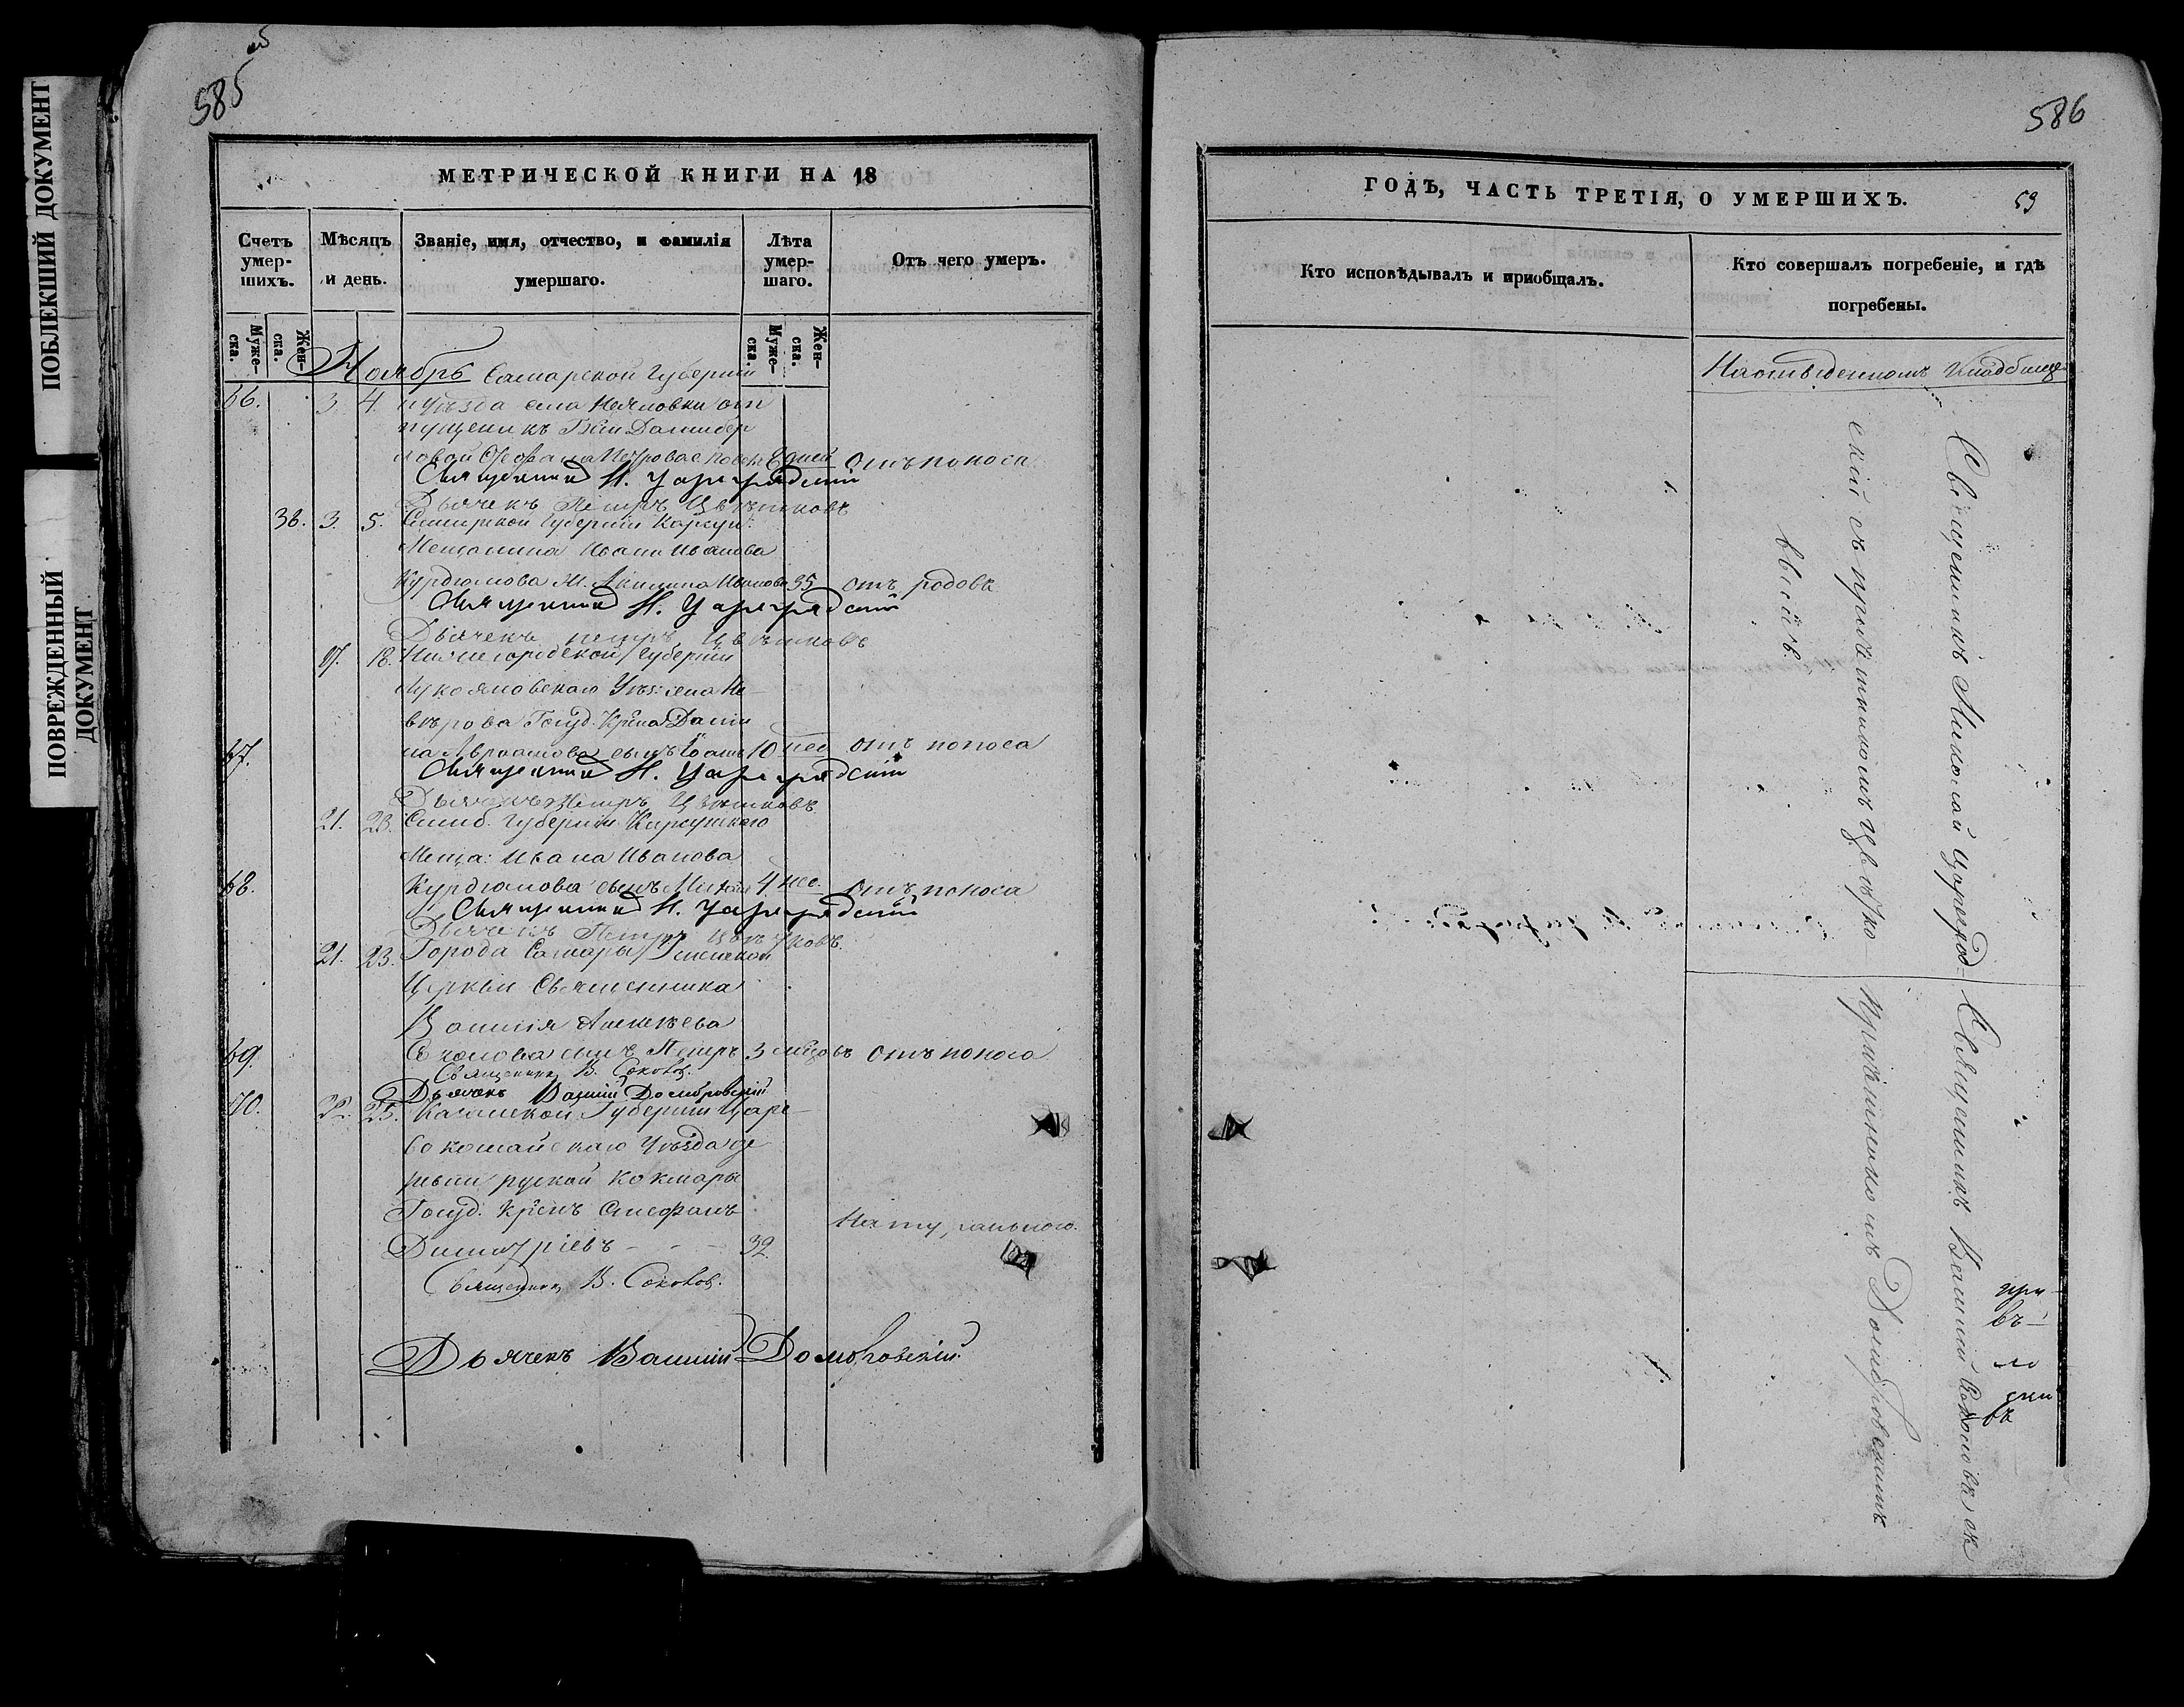 ПОБЛЕКШИЙ ДОКУМЕНТ
ПОВРЕЖДЕННЫЙ
ДОКУМЕНТ
585
МЕТРИЧЕСКОЙ КНИГИ НА 18
Счетъ умер-шихъ.
Мѣсяцъ и день.
Званіе, имя, отчество, и фамилія умершаго.
Лѣта умер-шаго.
Отъ чего умеръ.
Муже-ска.
Жен-ска.
Муже-ска.
Жен-ска.
Ноябрь Самарской Губерніи
66. 3. 4. уѣзда села от
пущеникъ
Петрова с 8 дней Отъ поноса
Священникъ Н. Цареградскій
Дьячекъ Петръ Цвѣтковъ
38. 3. 5. Симбирской Губерніи Карсун:
Мещанина Ивана Иванова
Курдюмова ж. Акилина Иванова 35 отъ родовъ
Священникъ Н. Цареградскій
Дьячекъ Петръ Цвѣтковъ
17. 18. Нижегородской Губерніи
Лукояновскаго Уѣз: села Не-
вѣрова Госуд. Крена Дани
ла Авраамова сынъ Іоаннъ 10 нед отъ поноса
67.
Священникъ Н. Цареградскій
Дьячекъ Петръ Цвѣтковъ
21. 23. Симб. Губерніи Карсунскаго
Меща: Ивана Иванова
68. Курдюмова сынъ 4 нед. Отъ поноса
Священникъ Н. Цареградскій
Дьячекъ Петръ Цвѣтковъ.
21. 23. Города Самары Успенской
Церкви Священника
Василія Алексѣева
69. Соколова сынъ Петръ 3 мѣсцовъ Отъ поноса
Священникъ В. Соколов.
Дьячекъ Василій Домбровскій
70. 22. 25. Казанской Губерніи Царе-
вокошайскаго Уѣзда де
ревни руской Кокшары
Госуд. Кренъ Стефанъ
Димитріевъ - - - 32. Натурального.
Священникъ В. Соколов.
Дьячекъ Василій Домбровскій.
586
ГОДЪ, ЧАСТЬ ТРЕТІЯ, О УМЕРШИХЪ.
59
Кто исповѣдывалъ и приобщалъ.
Кто совершалъ погребеніе, и гдѣ погребены.
На отведенномъ кладбище
Священникъ Николай Цареград-
скій съ причетникомъ Цвѣтко-
вымъ.
Священникъ Василій Соколовъ съ
Причетникомъ Домбровскимъ.
при
въ
ло
дни
въ